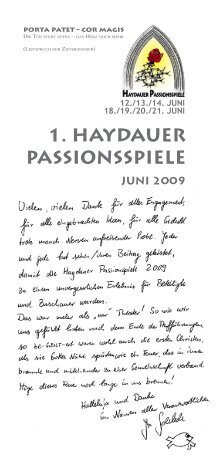 PORTA PATET – COR MAGIS
DIE TÜR STEHT OFFEN – DAS HERZ NOCH MEHR
(LEITSPRUCH DER ZISTERZIENSER)
HAYDAUER PASSIONSSPIELE
12./13./14. JUNI
18./19./20./21. JUNI
1. HAYDAUER
PASSIONSSPIELE
JUNI 2009
Vielen, vielen Dank für alles Engagement,
für alle eingebrachten Ideen, für alle Geduld
trotz manch Nerven aufreibender Probe. Jeder
und jede hat sein/ihren Beitrag geleistet,
damit die Haydauer Passionsspiele 2009
zu einem unvergesslichen Erlebnis für Beteiligte
und Zuschauer werden.
Das war mehr als „nur Theater"! So wie wir
uns gefühlt haben nach dem Ende der Aufführungen,
so be-Geist-ert waren wohl auch die ersten Christen,
als sie Gottes Nähe spürten wie ein Feuer, das in ihnen
brannte und miteinander zu einer Gemeinschaft verband.
Möge dieses Feuer noch lange in uns brennen!
Halleluja und Danke
im Namen aller Verantwortlichen